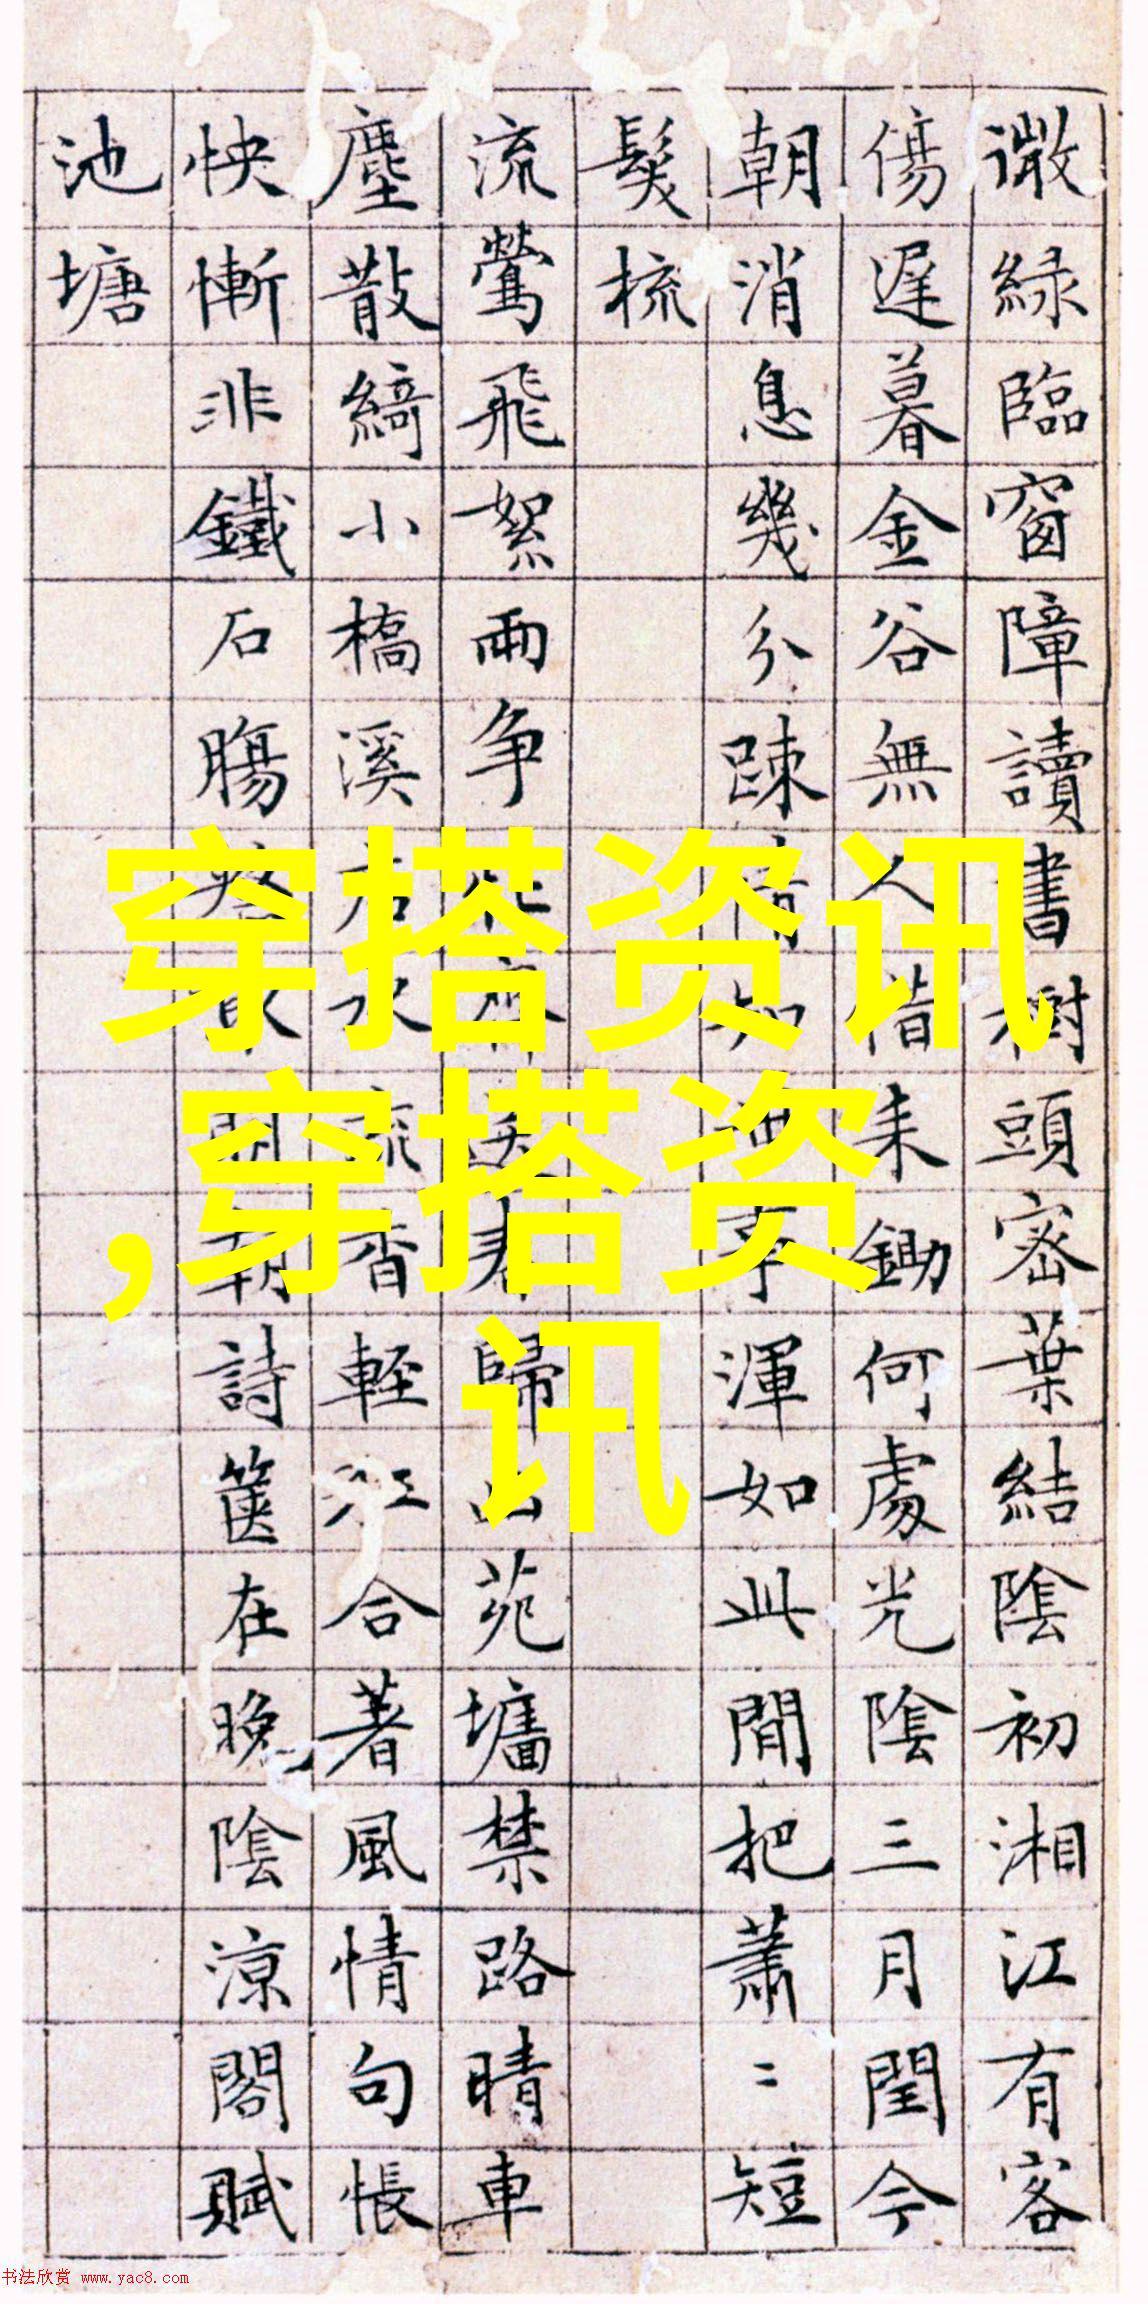 微綠臨窗障讀書樹頭密葉結陰初湘江有客
傷遲暮金谷無人借耒鋤何處光陰三月閏今
朝消息幾分踈情如無事渾如此閒把蕭〻短
鬓梳
流鶯飛絮兩争 春歸 苑墻禁路晴車
塵散綺小橋溪 水流香輕江合著風情句悵
怏慚非鐵石腸 朝詩篋在晚陰涼閣賦
池塘
穿搭资讯
,穿搭资
讯
书法欣赏 www.yac8.com